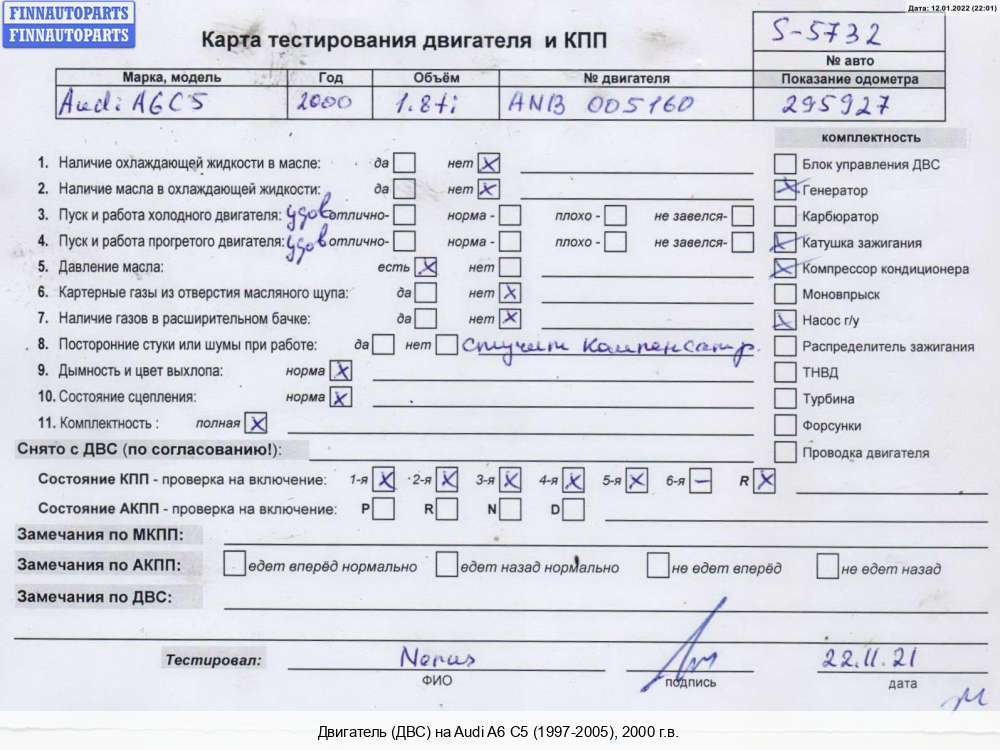 FINNAUTOPARTS
FINNAUTOPARTS
Дата: 12.01.2022 (22:01)
Карта тестирования двигателя и КПП
S-5732
№ авто
Марка, модель Год Объём № двигателя Показание одометра
Audi A6C5 2000 1.8ti ANB 005160 295927
комплектность
1. Наличие охлаждающей жидкости в масле: да нет X Блок управления ДВС
2. Наличие масла в охлаждающей жидкости: да нет X X Генератор
3. Пуск и работа холодного двигателя: удов отлично- норма - плохо - не завелся- Карбюратор
4. Пуск и работа прогретого двигателя: удов отлично- норма - плохо - не завелся- X Катушка зажигания
5. Давление масла: есть X нет X Компрессор кондиционера
6. Картерные газы из отверстия масляного щупа: да нет X Моновпрыск
7. Наличие газов в расширительном бачке: да нет X X Насос г/у
8. Посторонние стуки или шумы при работе: да нет Стучит компенсатр. Распределитель зажигания
9. Дымность и цвет выхлопа: норма X ТНВД
10. Состояние сцепления: норма X Турбина
11. Комплектность : полная X Форсунки
Снято с ДВС (по согласованию!): Проводка двигателя
Состояние КПП - проверка на включение: 1-я X 2-я X 3-я X 4-я X 5-я X 6-я – R X
Состояние АКПП - проверка на включение: P R N D
Замечания по МКПП:
Замечания по АКПП: едет вперёд нормально едет назад нормально не едет вперёд не едет назад
Замечания по ДВС:
Тестировал: 22.11.21
ФИО подпись дата
Двигатель (ДВС) на Audi A6 C5 (1997-2005), 2000 г.в.